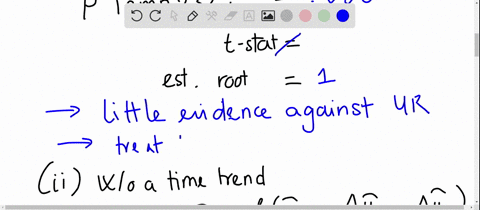 t-stat =
est. root = 1
→ little evidence against UR
→ treat
(ii) w/o a time trend